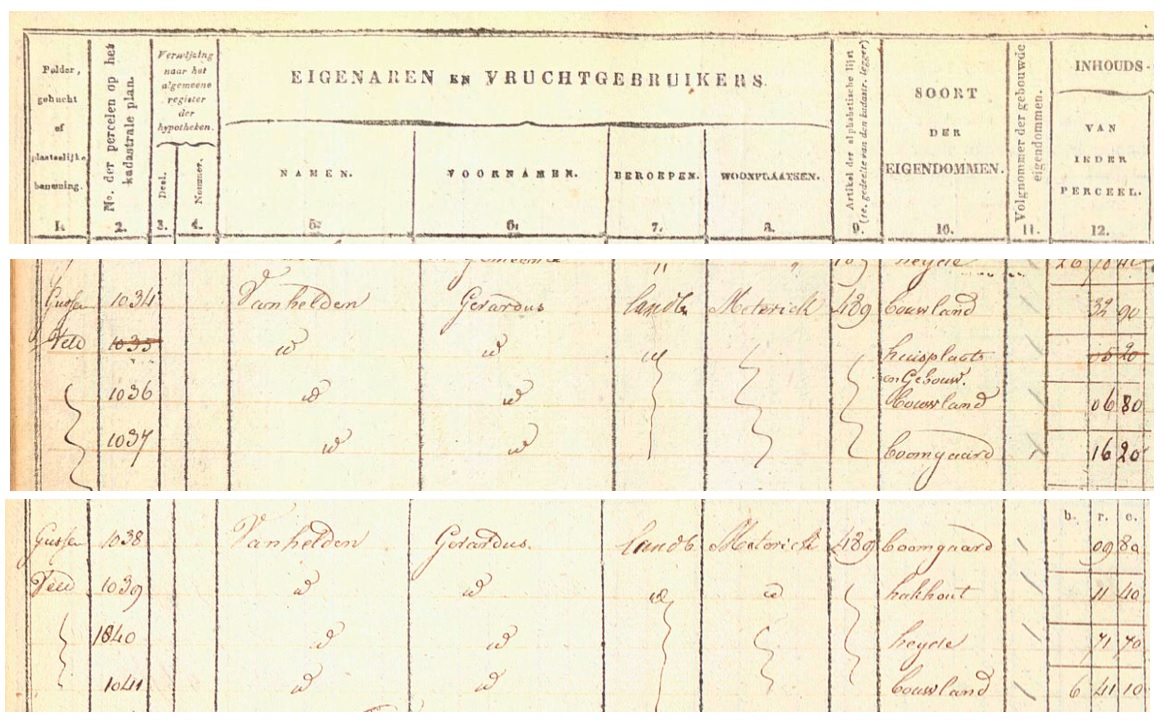 Polder, gehucht of plaatselijke benaming.
No. der percelen op het kadastrale plan.
Verwijzing naar het algemeene register der hypotheken.
Deel.
Nommer.
EIGENAREN EN VRUCHTGEBRUIKERS.
NAMEN.
VOORNAMEN.
BEROEPEN.
WOONPLAATSEN.
Artikel der alphabetische lijst
(1e. gedeelte van den kadastr. legger)
SOORT DER EIGENDOMMEN.
Volgnommer der gebouwde eigendommen.
INHOUDS-
VAN IEDER PERCEEL.
1. 2. 3. 4. 5. 6. 7. 8. 9. 10. 11. 12.
gemeente " 189 heyde
Gussen 1034 Vanhelden Gerardus landb. Meterick 489 bouwland 32 90
Veld 1035 id id id huisplaats 05 20
en Gebouw.
1036 id id bouwland 06 80
1037 id id boomgaard 16 20
b. r. e.
Gussen 1038 Vanhelden Gerardus. landb. Meterick 489 boomgaard 09 80
Veld 1039 id id id id hakhout 11 40
1040 id id heyde 71 70
1041 id id bouwland 6 41 10